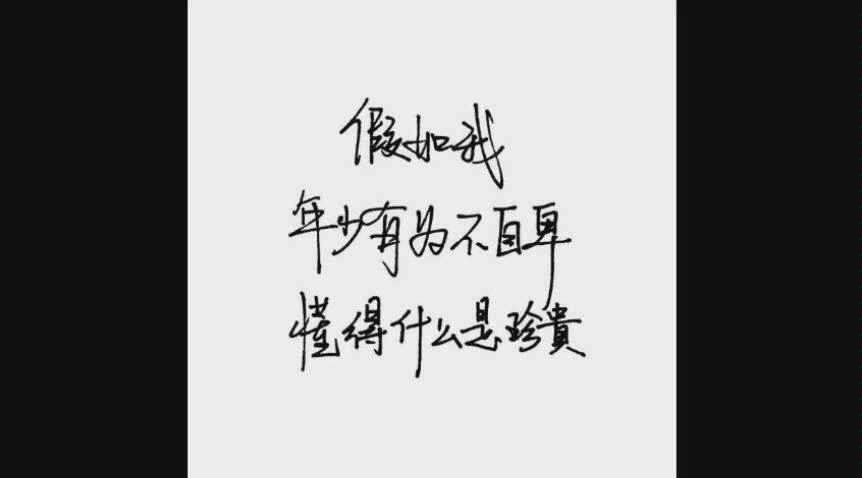 假如我
年少有为不自卑
懂得什么是珍貴